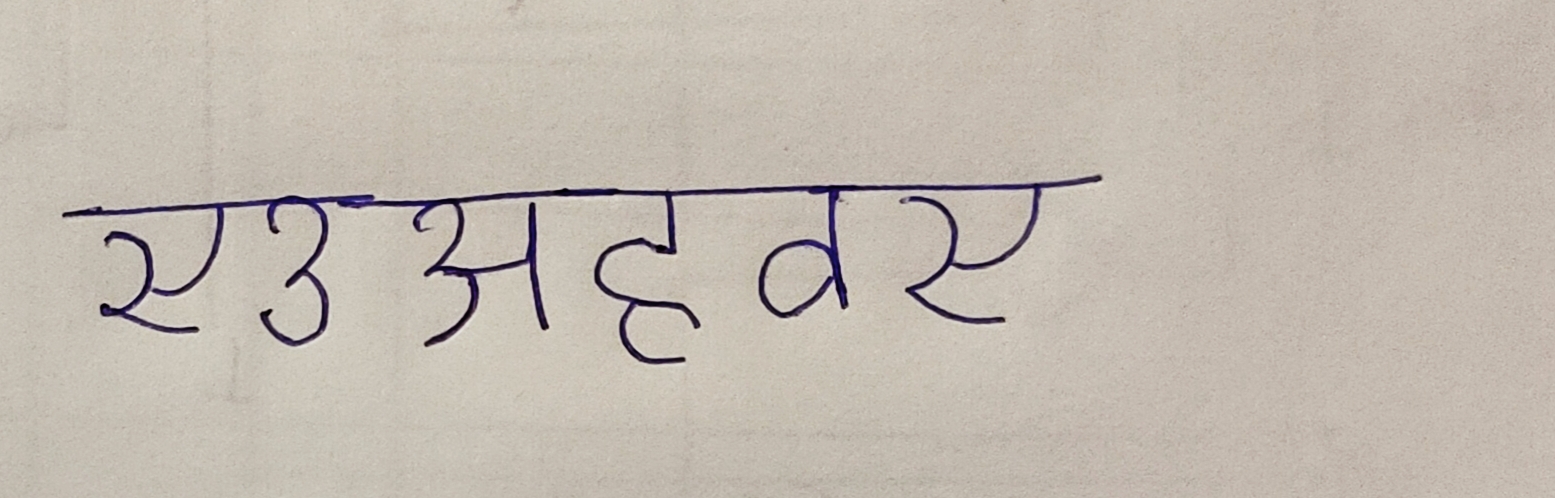 एउअहवए